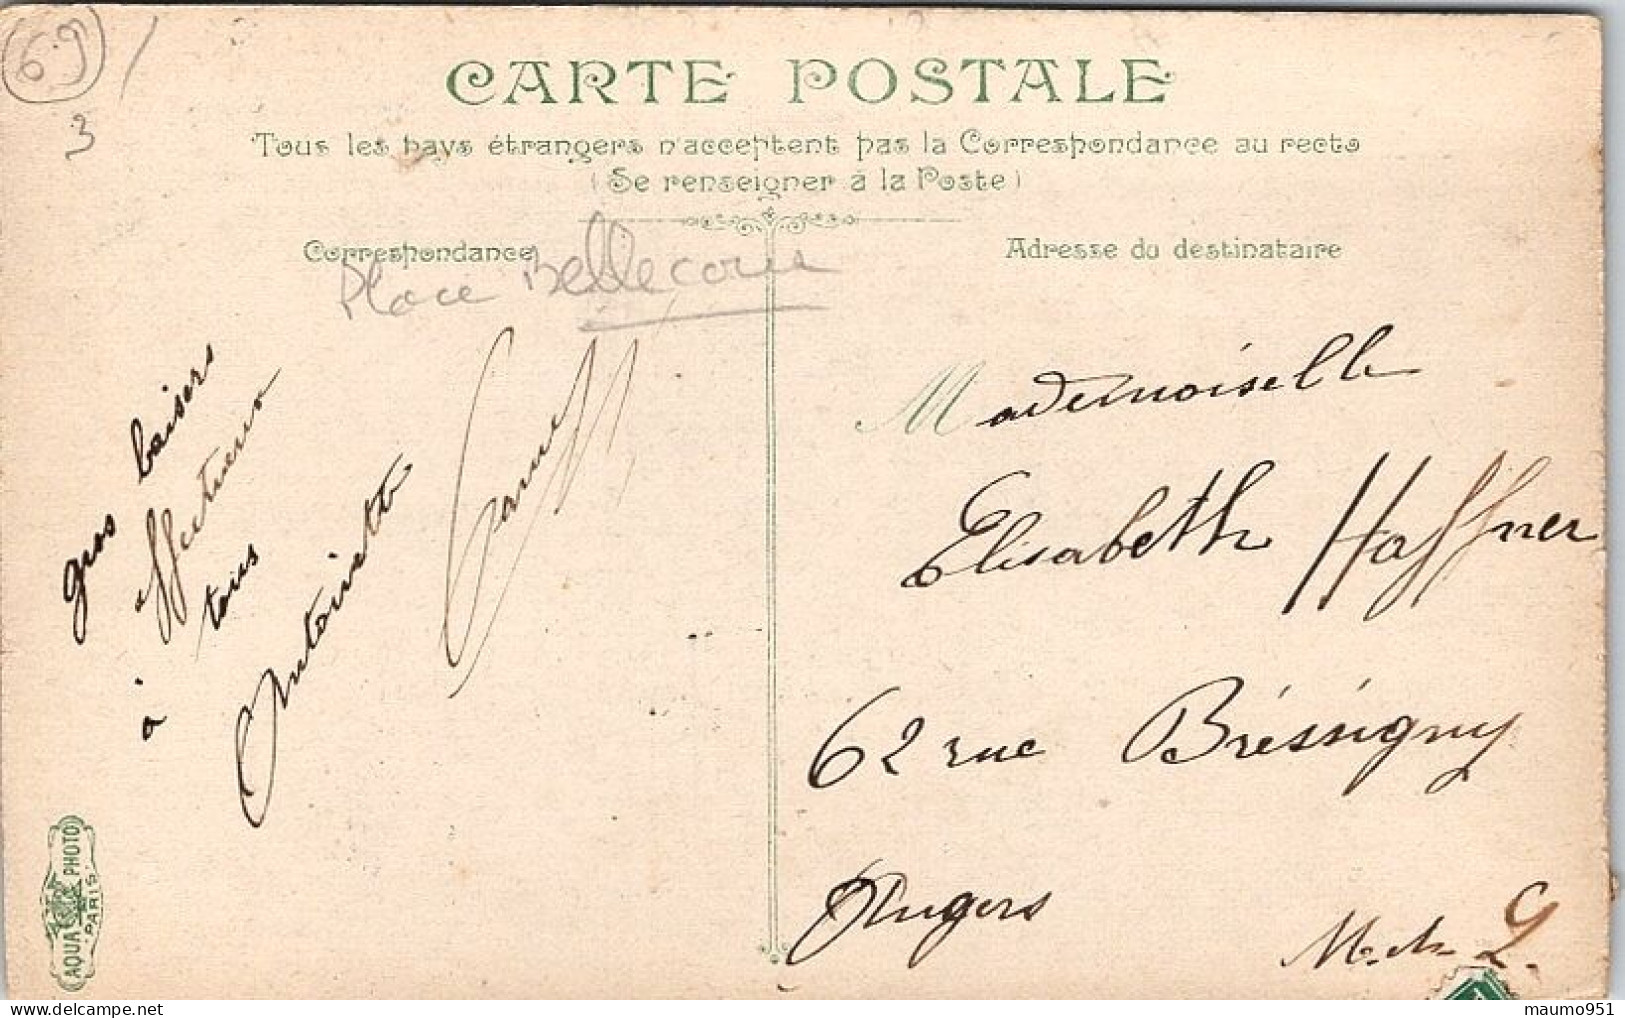 69
3
CARTE POSTALE
Tous les pays étrangers n'acceptent pas la Correspondance au recto
(Se renseigner à la Poste)
Correspondance
Place Bellecour
gros baisers
affectueux
à tous
Antoinette
Adresse du destinataire
Mademoiselle
Elisabeth Haffner
62 rue Bréssigny
Angers
M.-&-L.
AQUA PHOTO
PARIS
maumo951